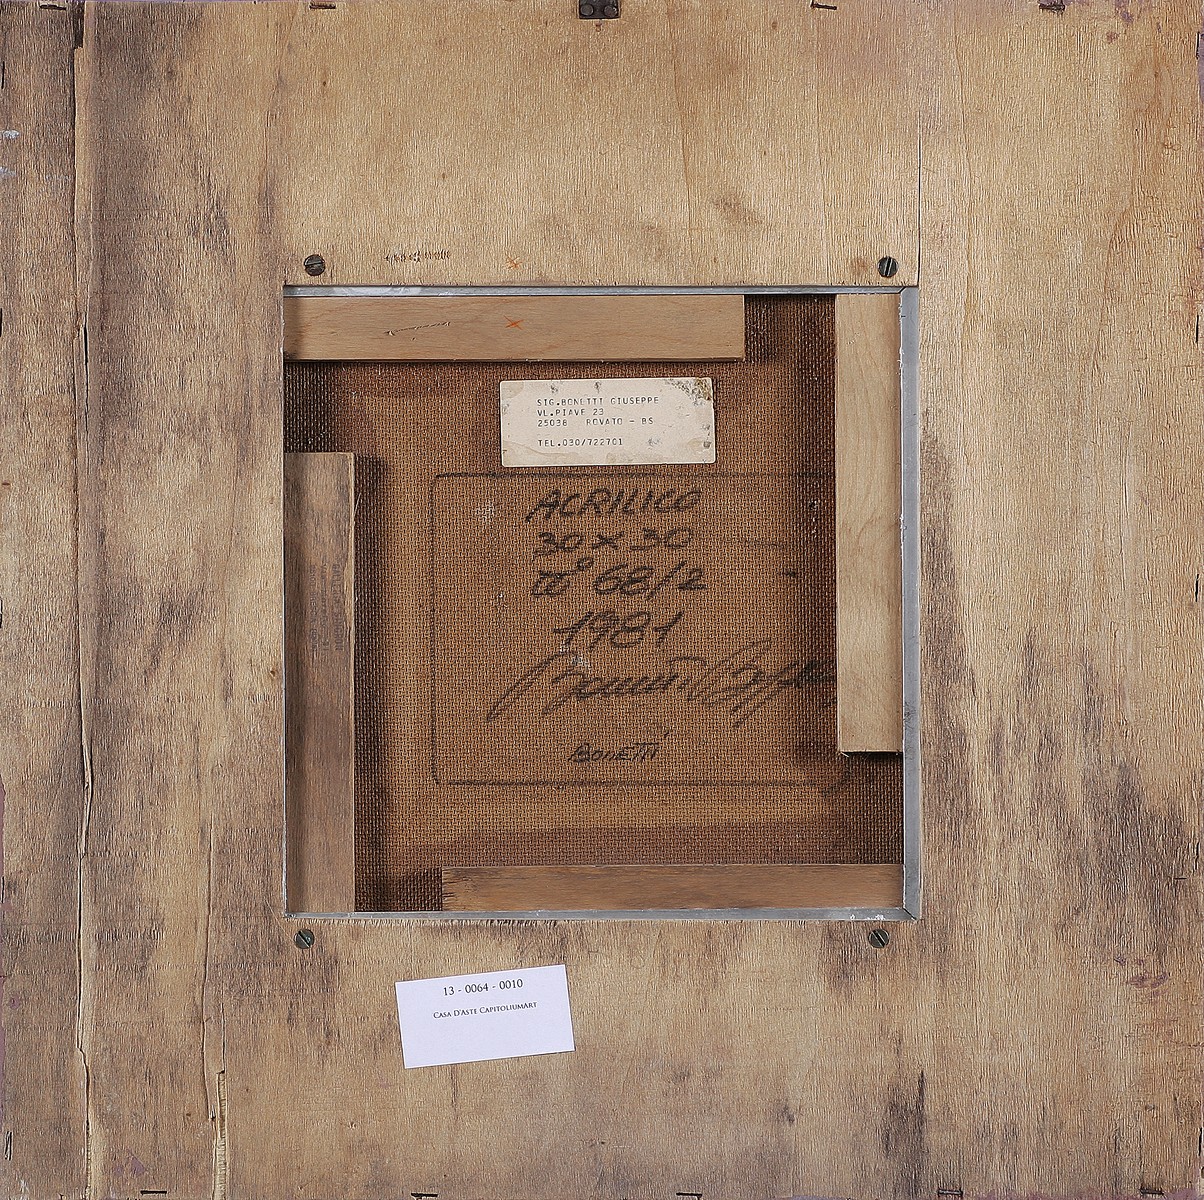 SIG.BONETTI GIUSEPPE
VL.PIAVE 23
25038 ROVATO - BS
TEL.030/722701
ACRILICO
30 x 30
68/2
1981
BONETTI
13 - 0064 - 0010
CASA D'ASTE CAPITOLIUMART